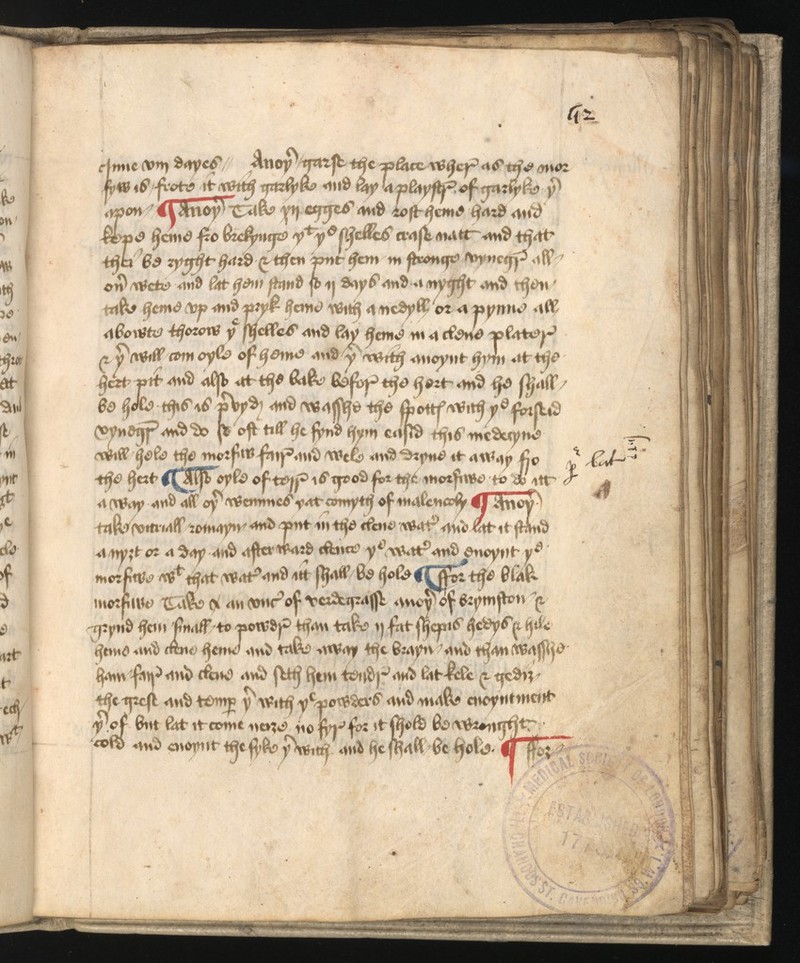 42
tyme viij dayes // Anoyer garse the place wher as the mor
fyw is frote it with garlyke and lay a playster of garlyke yr
apon ¶ Anoyer Take xij egges and rost heme hard and
kepe heme fro brekynge yt ye shelles crase natt and that
ther be ryght hard & then put hem in stronge vynegr all
on wete and lat hem stand so ij days and a nyght and then
take heme vp and pryk heme with a nedyll or a pynne all
abowte thorow ye shelles and lay heme in a clene plater
& yr will com oyle of heme and yr with anoynt hym at the
hert pit and also at the bake befor the hert and he shall
be hole this is prvyd and wasshe the spott with ye forseid
vynegr and do so oft till he fynd hym eased this medecyne
will hele the morfiw fair and wele and dryue it a way fro
the hert ¶ Also oyle of is good for the morfiwe to do itt
a way and all oyr wemmes yat comyth of malencoly ¶ Anoyer
take vitriall romayn and put in the clene watr and lat it stand
a nyȝt or a day and afterward clence ye watr and enoynt ye
morfiwe wt that watr and itt shall be hole ¶ ffor the blak
morfiwe Take an vnc of verdegrasse anoyr of brymston &
grynd hem small to powdr than take ij fat shepis hedys & hile
heme and clene heme and take away the brayn and than wasshe
ham fair and clene and seth hem tendr and lat kele & gedir
the grese and temper yr with ye powders and make enoyntment
yr of but lat it come nere no fyr for it shold be wrought
cold and enoynt the syke yr with and he shall be hole ¶ ffor
MEDICAL SOCIETY
CHANDOS ST. CAVENDISH SQ. W.